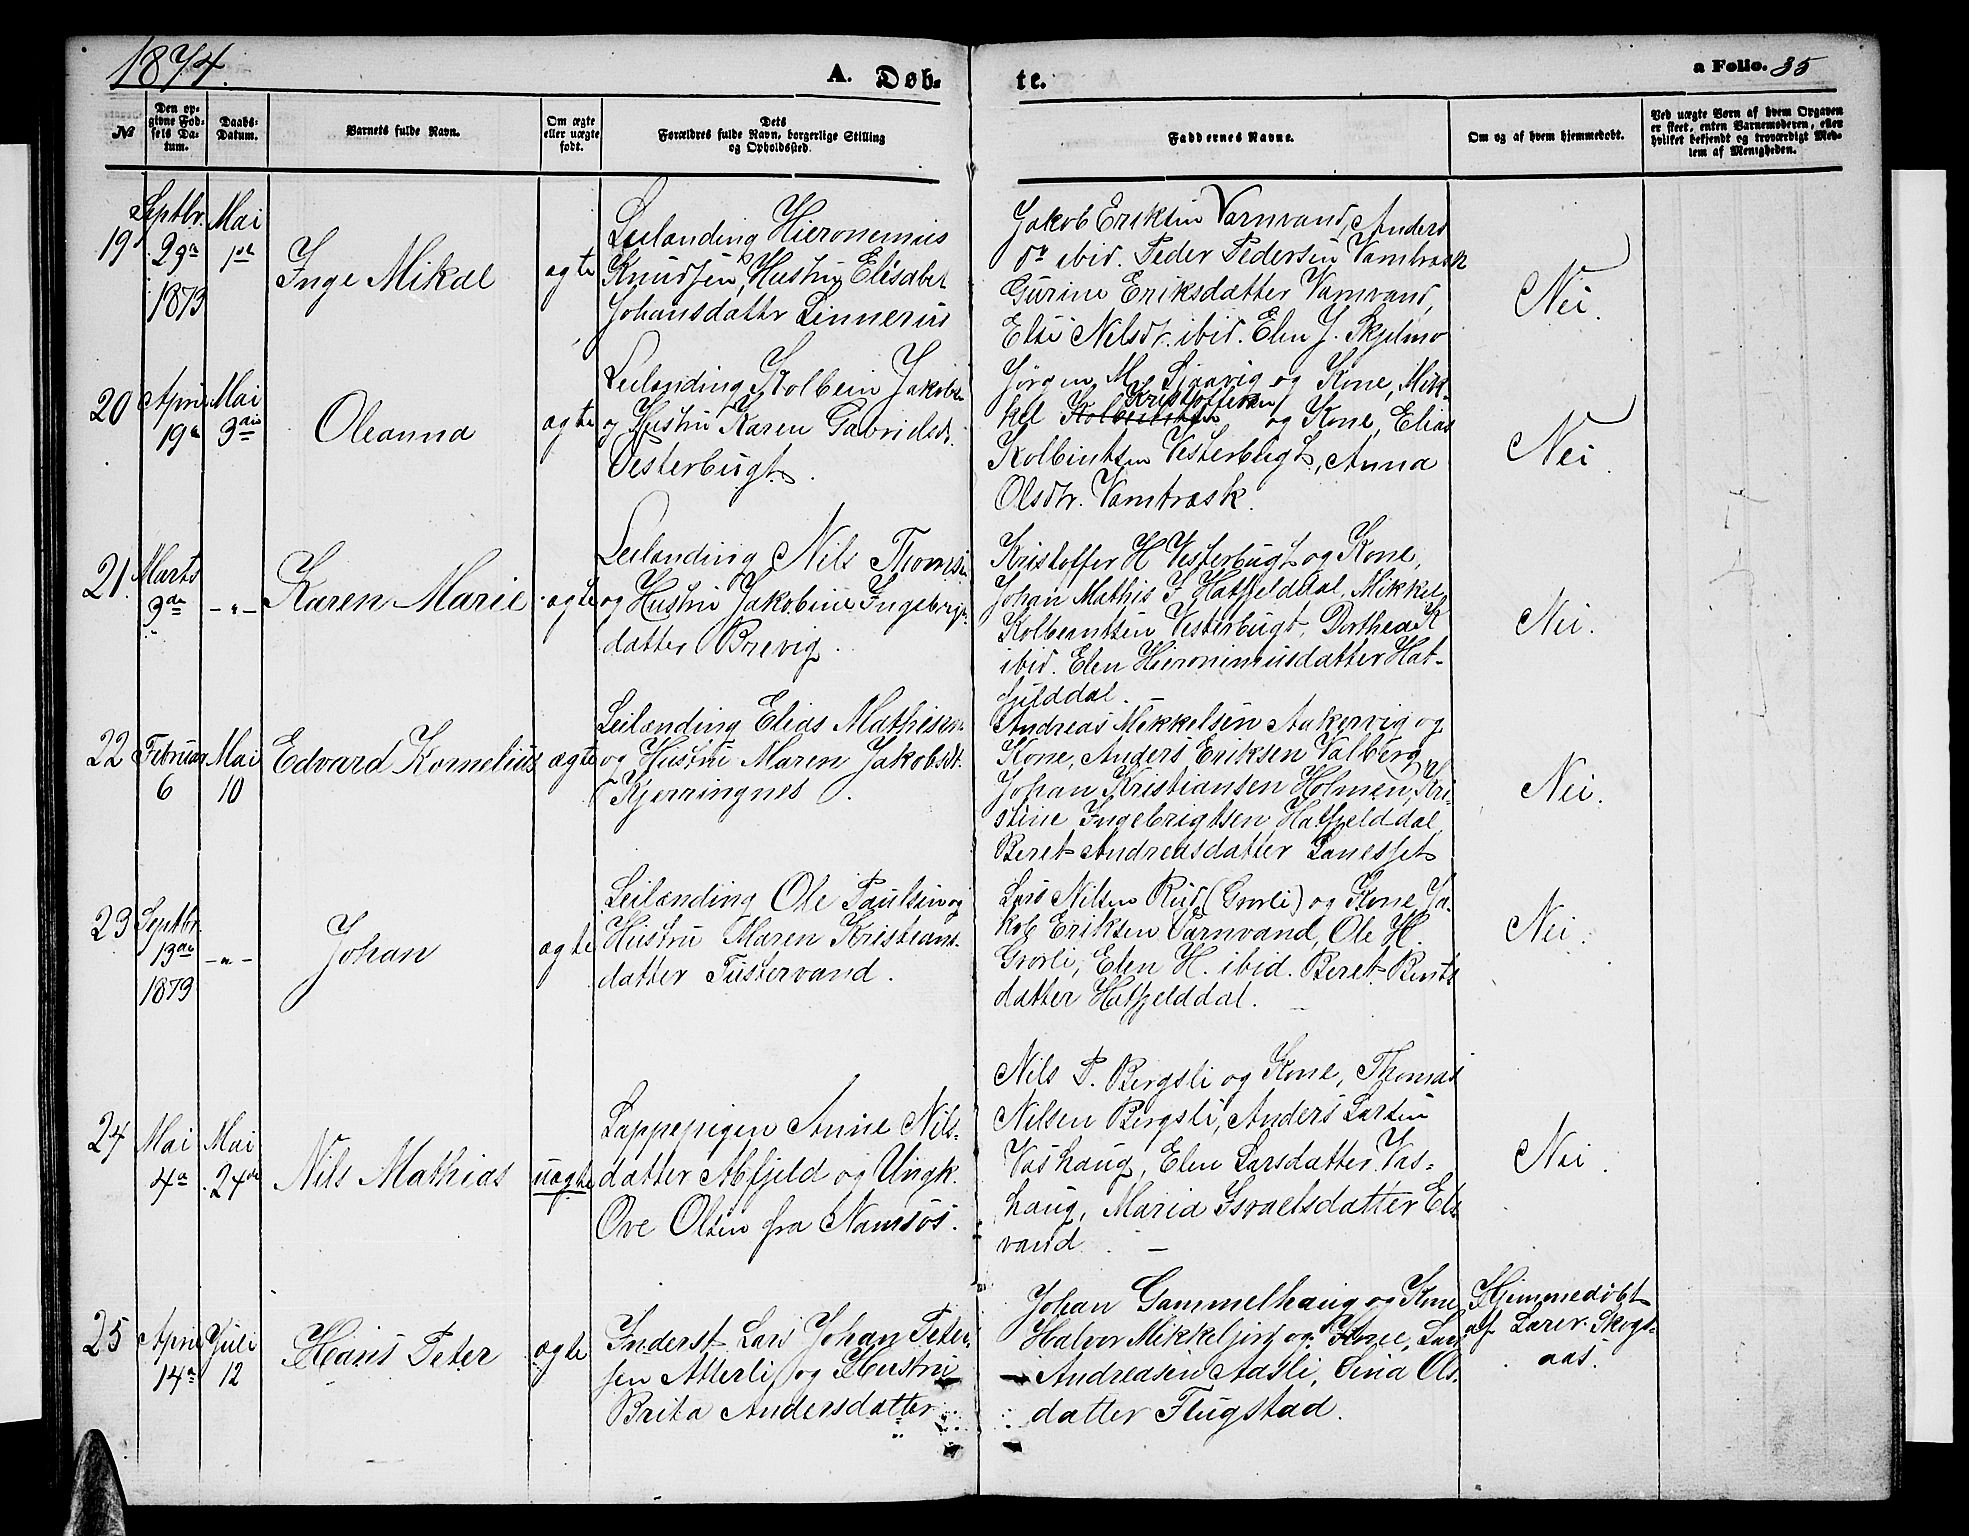 1874.
A. Døb-
te.
a Folio. 35
№
Den op-
givne Fød-
sels Da-
tum.
Daabs-
Datum.
Barnets fulde Navn.
Om ægte
eller uægte
født.
Dets
Forældres fulde Navn, borgerlige Stilling
og Opholdssted.
Faddernes Navne.
Om og af hvem hjemmedøbt.
Ved uægte Børn af hvem Opgaven
er skeet, enten Barnemoderen, eller
hvilket bekjendt og troværdigt Med-
lem af Menigheden.
19
Septbr.
29de
1873
Mai
1st
Inge Mikal
ægte
Leilænding Hieronemus
Knudsen, Hustru Elisabet
Johansdatter Linnerius
Jakob Eriksen Varnvand, Anders
Do ibid. Peder Pedersen Vamtrask
Gurine Eriksdatter Varnvand,
Else Nilsdr. ibid. Elen J. Skjelmo
Nei.
20
April
19de
Mai
3die
Oleanna
ægte
Leilænding Kolbein Jakobsen
og Hustru Karen Gabrielsdr.
Vesterbugt.
Jørgen M. Sjaavig og Kone, Mik-
Kristoffersen
kel Kolbeintsen og Kone, Elias
Kolbintsen Vesterbugt, Anna
Olsdtr. Vamtrask.
Nei.
21.
Marts
3de
-"-
Karen Marie
ægte
Leilænding Nils Thomsen
og Hustru Jakobine Ingebrigts-
datter Brevig.
Kristoffer H Vesterbugt og Kone,
Johan Mathis J Hatfjelddal, Mikkel
Kolbeintsen Vesterbugt, Dorthea K
ibid. Elen Hieronimusdatter Hat-
fjelddal.
Nei.
22
Februar
6
Mai
10
Edvard Kornelius
ægte
Leilænding Elias Mathisen
og Hustru Maren Jakobsdt.
Kjerringnes.
Andreas Mikkelsen Aakervig og
Kone, Anders Eriksen Valberg,
Johan Kristiansen Holmen, Kri-
stine Ingebrigtsen Hatfjelddal,
Beret Andreasdatter
Nei.
23
Septbr.
13de
1873
-"-
Johan
ægte
Leilænding Ole Paulsen og
Hustru Maren Kristians-
datter Tustervand.
Lars Nilsen Rud (Grovli) og Kone, Ja-
kob Eriksen Varnvand, Ole H.
Grovli, Elen H. ibid. Beret Bents-
datter Hatfjelddal.
Nei.
24
Mai
4de
Mai
24de
Nils Mathias
uægte
Lappepigen Anne Nils-
datter Abfjeld og Ungk.
Ove Olsen fra Namsos.
Nils P. Bergsli og Kone, Thomas
Nilsen Bergsli, Anders Larsen
Vashaug, Elen Larsdatter Vas-
haug, Maria Israelsdatter Els-
vand.
Nei.
25
April
14de
Juli
12
Hans Peter
ægte
Inderst Lars Johan Peter-
sen Atterli og Hustru
Brita Andersdatter
Johan Gammelhaug og Kone
Halvor Mikkeljord og Kone, Lars
Andreasen Aasli, Lina Ols-
datter Flugstad.
Hjemmedøbt
af Lærer Skogs-
aas.